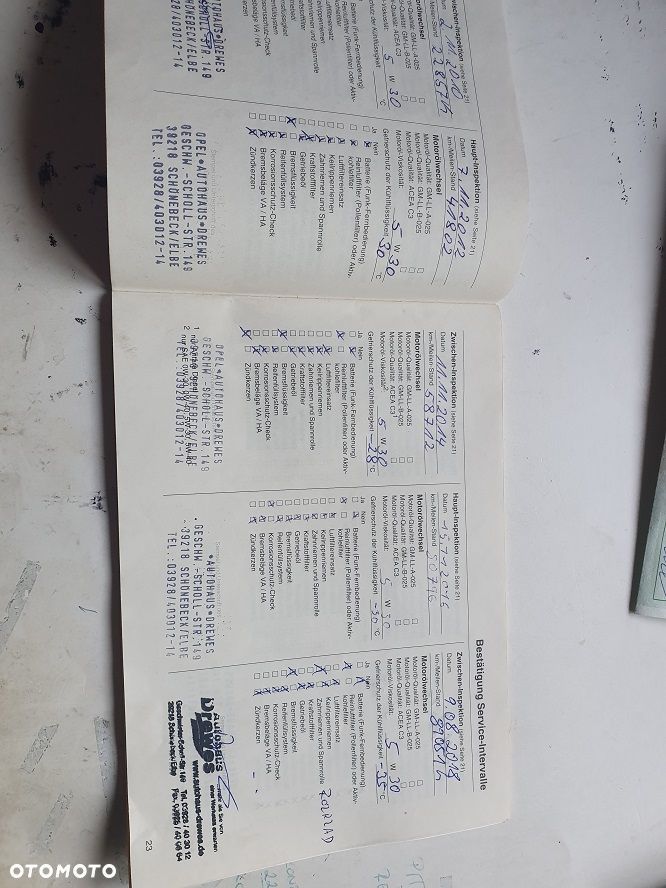 Bestätigung Service-Intervalle
Zwischen-Inspektion (siehe Seite 21)
Datum 2.11.2010
km/Meilen-Stand
Motorölwechsel
Motoröl-Qualität: GM-LL-A-025
Motoröl-Qualität: GM-LL-B-025
Motoröl-Qualität: ACEA C3
Motoröl-Viskosität: 5 W 30
Gefrierschutz der Kühlflüssigkeit °C
Ja Nein
Batterie (Funk-Fernbedienung)
Reinluftfilter (Pollenfilter) oder Aktiv-
kohlefilter
Luftfiltereinsatz
Keilrippenriemen
Zahnriemen und Spannrolle
Kraftstofffilter
Getriebeöl
Bremsflüssigkeit
Reifenfüllsystem
Korrosionsschutz-Check
Bremsbeläge VA / HA
Zündkerzen
AUTOHAUS*DREWES
SCHOLL-STR.149
SCHÖNEBECK/ELBE
03928/403012-14
Haupt-Inspektion (siehe Seite 21)
Datum 7.11.2012
km/Meilen-Stand 41802
Motorölwechsel
Motoröl-Qualität: GM-LL-A-025
Motoröl-Qualität: GM-LL-B-025
Motoröl-Qualität: ACEA C3
Motoröl-Viskosität: 5 W 30
Gefrierschutz der Kühlflüssigkeit 30 °C
Ja Nein
Batterie (Funk-Fernbedienung)
Reinluftfilter (Pollenfilter) oder Aktiv-
kohlefilter
Luftfiltereinsatz
Keilrippenriemen
Zahnriemen und Spannrolle
Kraftstofffilter
Getriebeöl
Bremsflüssigkeit
Reifenfüllsystem
Korrosionsschutz-Check
Bremsbeläge VA / HA
Zündkerzen
OPEL*AUTOHAUS*DREWES
GESCHW.-SCHOLL-STR.149
39218 SCHÖNEBECK/ELBE
TEL.:03928/403012-14
Zwischen-Inspektion (siehe Seite 21)
Datum 11.11.2014
km/Meilen-Stand 58712
Motorölwechsel
Motoröl-Qualität: GM-LL-A-025
Motoröl-Qualität: GM-LL-B-025
Motoröl-Qualität: ACEA C3
Motoröl-Viskosität: 5 W 30
Gefrierschutz der Kühlflüssigkeit -28 °C
Ja Nein
Batterie (Funk-Fernbedienung)
Reinluftfilter (Pollenfilter) oder Aktiv-
kohlefilter
Luftfiltereinsatz
Keilrippenriemen
Zahnriemen und Spannrolle
Kraftstofffilter
Getriebeöl
Bremsflüssigkeit
Reifenfüllsystem
Korrosionsschutz-Check
Bremsbeläge VA / HA
Zündkerzen
OPEL*AUTOHAUS*DREWES
GESCHW.-SCHOLL-STR.149
Haupt-Inspektion (siehe Seite 21)
Datum
km/Meilen-Stand
Motorölwechsel
Motoröl-Qualität: GM-LL-A-025
Motoröl-Qualität: GM-LL-B-025
Motoröl-Qualität: ACEA C3
Motoröl-Viskosität: 5 W 30
Gefrierschutz der Kühlflüssigkeit -30 °C
Ja Nein
Batterie (Funk-Fernbedienung)
Reinluftfilter (Pollenfilter) oder Aktiv-
kohlefilter
Luftfiltereinsatz
Keilrippenriemen
Zahnriemen und Spannrolle
Kraftstofffilter
Getriebeöl
Bremsflüssigkeit
Reifenfüllsystem
Korrosionsschutz-Check
Bremsbeläge VA / HA
Zündkerzen
*AUTOHAUS*DREWES
GESCHW.-SCHOLL-STR.149
39218 SCHÖNEBECK/ELBE
TEL.:03928/403012-14
Zwischen-Inspektion (siehe Seite 21)
Datum 9.08.2018
km/Meilen-Stand
Motorölwechsel
Motoröl-Qualität: GM-LL-A-025
Motoröl-Qualität: GM-LL-B-025
Motoröl-Qualität: ACEA C3
Motoröl-Viskosität: 5 W 30
Gefrierschutz der Kühlflüssigkeit -35 °C
Ja Nein
Batterie (Funk-Fernbedienung)
Reinluftfilter (Pollenfilter) oder Aktiv-
kohlefilter
Luftfiltereinsatz
Keilrippenriemen
Zahnriemen und Spannrolle ROZRZĄD
Kraftstofffilter
Getriebeöl
Bremsflüssigkeit
Reifenfüllsystem
Korrosionsschutz-Check
Bremsbeläge VA / HA
Zündkerzen
Autohaus
Drewes
www.autohaus-drewes.de
Tel. 03928 / 40 30 12
23
OTOMOTO